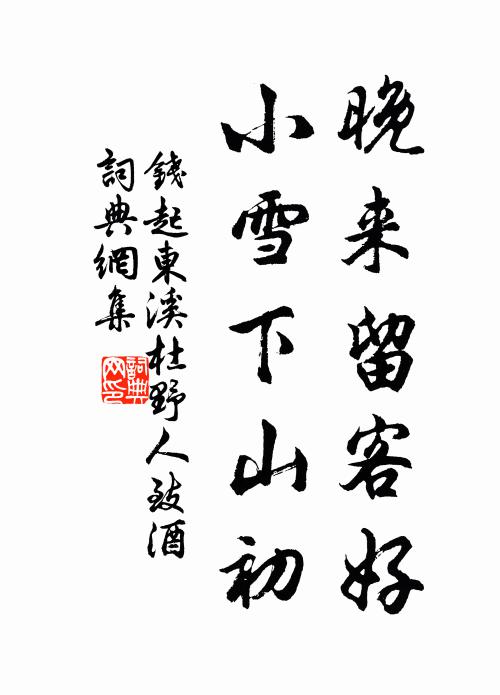 晚来留客好
小雪下山初
錢起東溪杜野人致酒
詞典網集
詞典網印